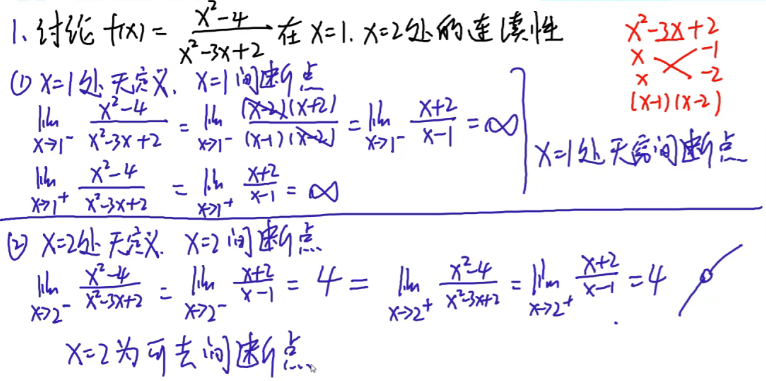 1. 讨论 f(x) = \frac{x^2-4}{x^2-3x+2} 在 x=1. x=2处的连续性
x^2-3x+2
x -1
x -2
(x-1)(x-2)
① x=1处无定义. x=1间断点
\lim_{x→1^-} \frac{x^2-4}{x^2-3x+2} = \lim_{x→1^-} \frac{(x-2)(x+2)}{(x-1)(x-2)} = \lim_{x→1^-} \frac{x+2}{x-1} = ∞
\lim_{x→1^+} \frac{x^2-4}{x^2-3x+2} = \lim_{x→1^+} \frac{x+2}{x-1} = ∞
x=1处无穷间断点
② x=2处无定义. x=2间断点
\lim_{x→2^-} \frac{x^2-4}{x^2-3x+2} = \lim_{x→2^-} \frac{x+2}{x-1} = 4 = \lim_{x→2^+} \frac{x^2-4}{x^2-3x+2} = \lim_{x→2^+} \frac{x+2}{x-1} = 4
x=2为可去间断点.